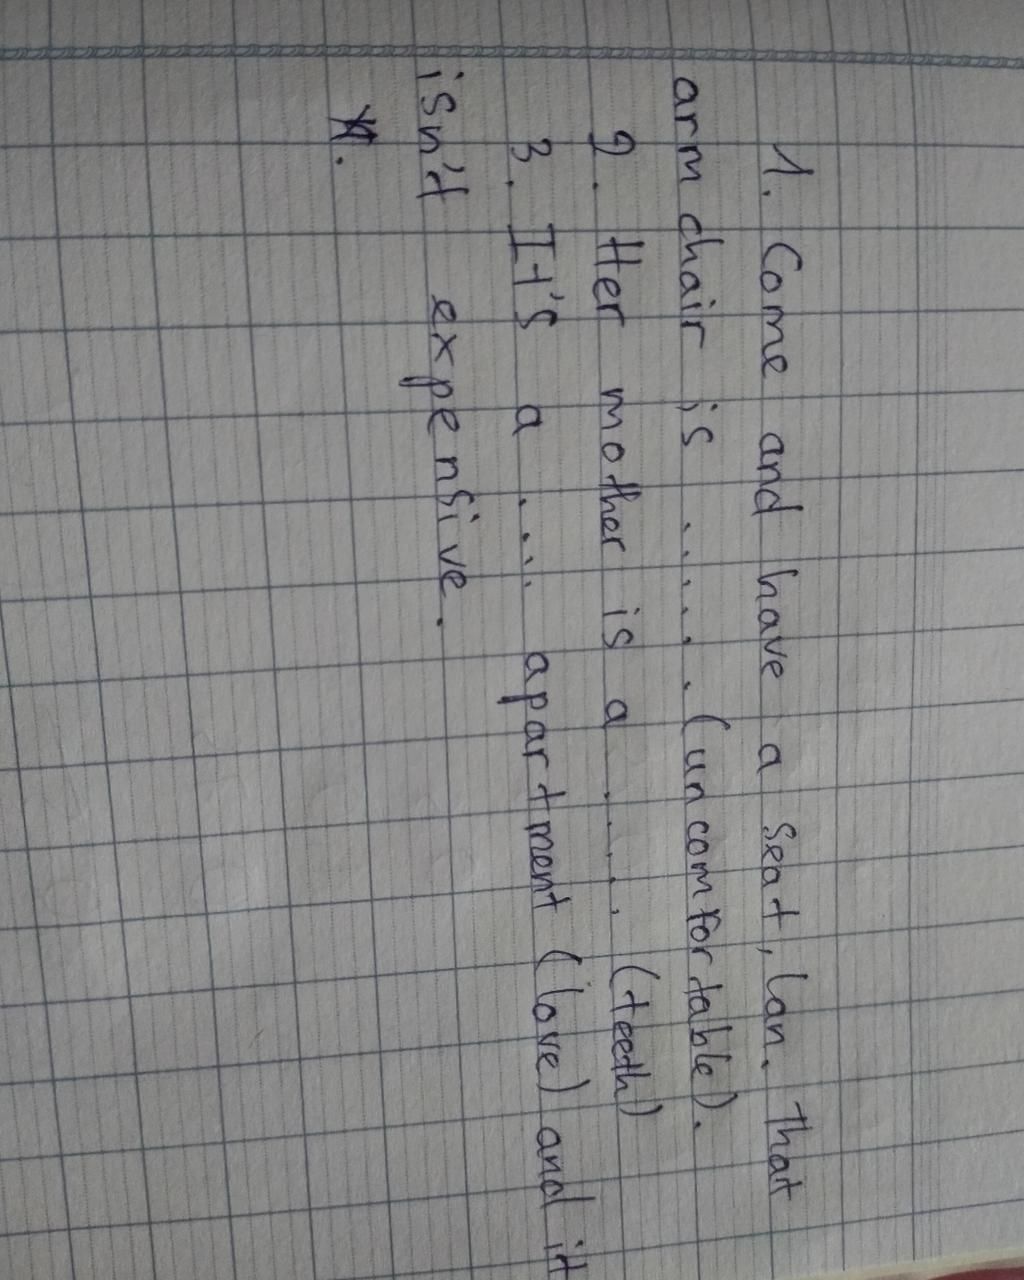 1. Come and have a seat, lan. That
arm chair is ..... (uncomfortable).
2. Her mother is a ..... (teeth)
3. It's a .... apartment (love) and it
isn't expensive.